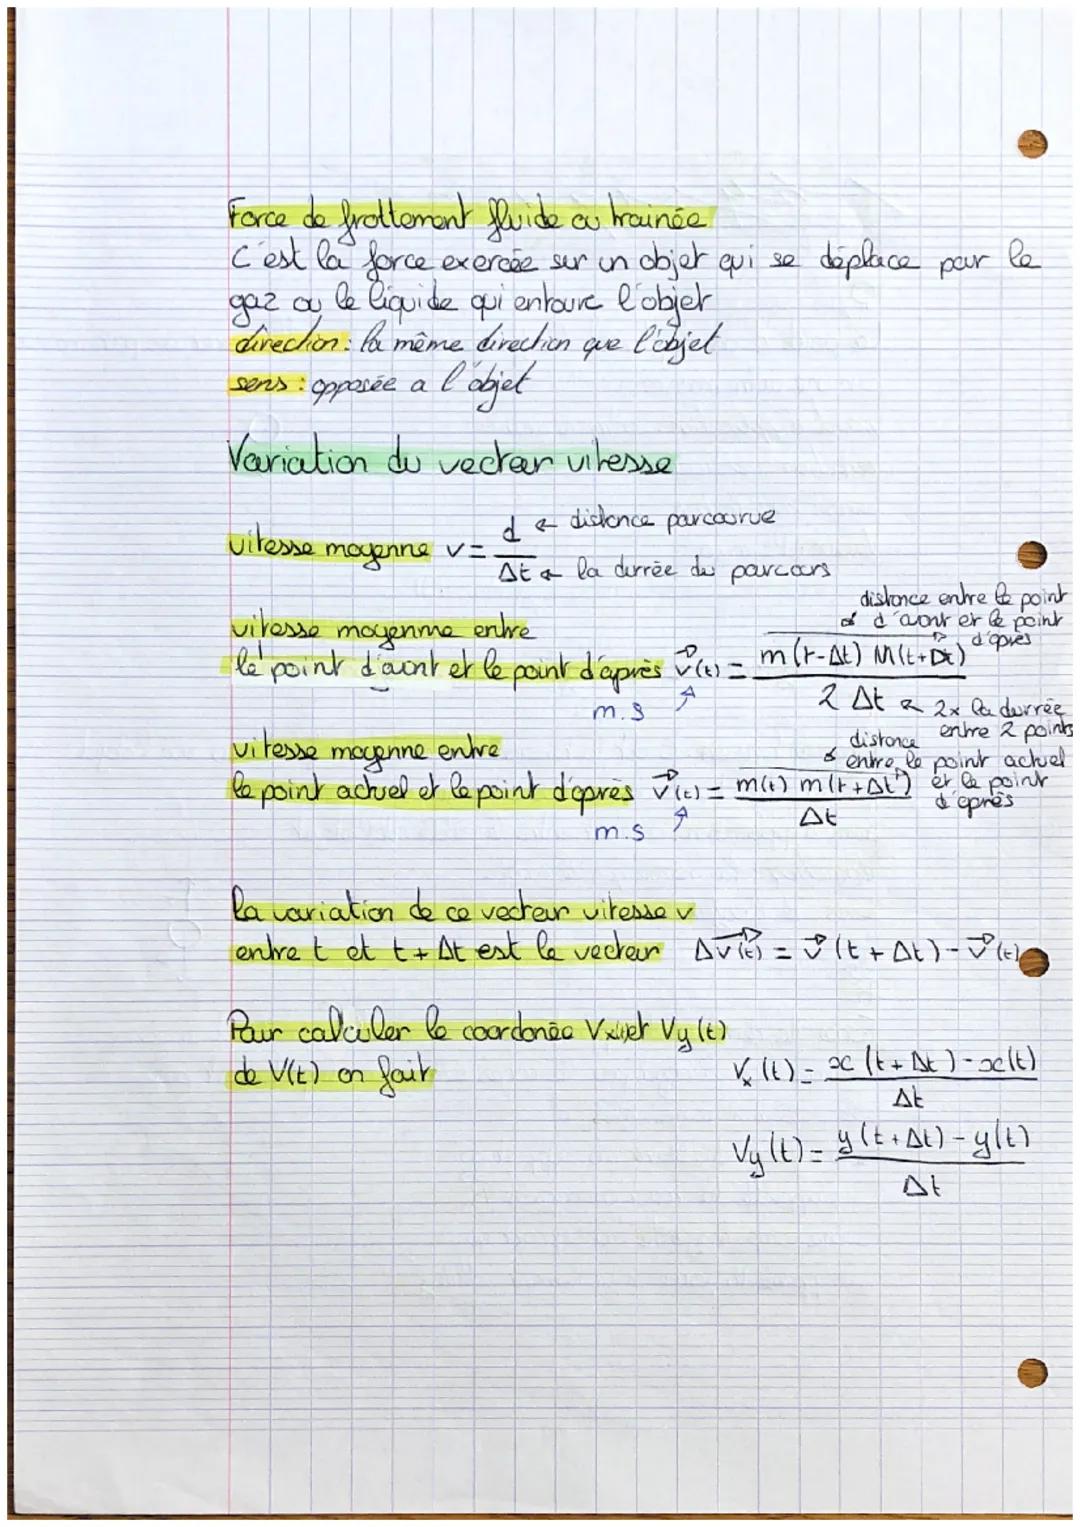 Force de frottement fluide ou trainée
C'est la force exercée sur un objet qui se déplace par le
gaz ou le liquide qui entoure l'objet
direction : la même direction que l'objet
sens : opposée a l'objet
Variation du vecteur vitesse
vitesse moyenne v = d / Δt
← distance parcourue
← la durrée du parcours
vitesse moyenne entre
le point d'avant et le point d'après v⃗(t) = m(t-Δt) M(t+Δt) / 2 Δt
distance entre le point
d'avant et le point
d'après
2x la durrée
entre 2 points
m.s
vitesse moyenne entre
le point actuel et le point d'après v⃗(t) = m(t) m(t+Δt) / Δt
distance
entre le point actuel
et le point
d'après
m.s
la variation de ce vecteur vitesse v
entre t et t + Δt est le vecteur Δv⃗(t) = v⃗(t + Δt) - v⃗(t)
Pour calculer le coordonée Vx(t) et Vy(t)
de V(t) on fait
Vx(t) = x(t + Δt) - x(t) / Δt
Vy(t) = y(t + Δt) - y(t) / Δt